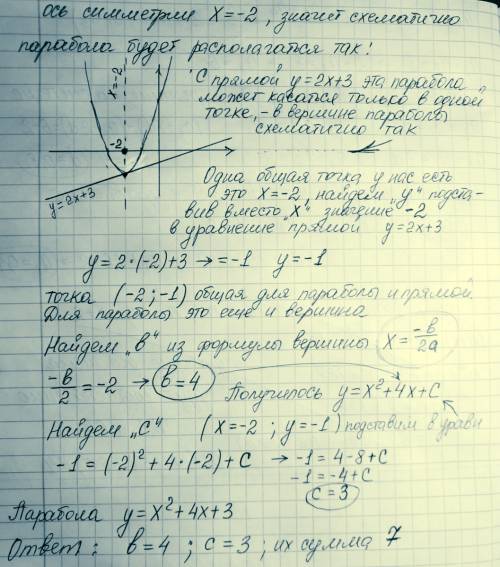 ось симметрии x=-2, значит схематично
парабола будет располагаться так!
x=-2
-2
y=2x+3
С прямой y=2x+3 эта парабола
может касаться только в одной
точке, - в вершине параболы
схематично так
Одна общая точка у нас есть
это x=-2, найдем „y" подста-
вив вместо „x" значение -2
в уравнение прямой y=2x+3
y=2·(-2)+3 → =-1 y=-1
точка (-2;-1) общая для параболы и прямой.
Для параболы это еще и вершина
Найдем „в" из формулы вершины x=-в/2a
-в/2=-2 → в=4
Получилось y=x²+4x+C
Найдем „C" (x=-2; y=-1) подставим в уравн
-1=(-2)²+4·(-2)+C → -1=4-8+C
-1=-4+C
c=3
Парабола y=x²+4x+3
Ответ: в=4; c=3; их сумма 7